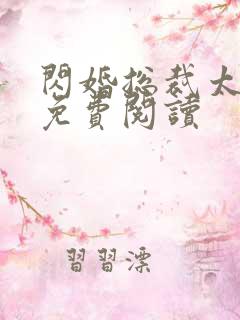 閃婚总裁大
免費閱讀
習習漂